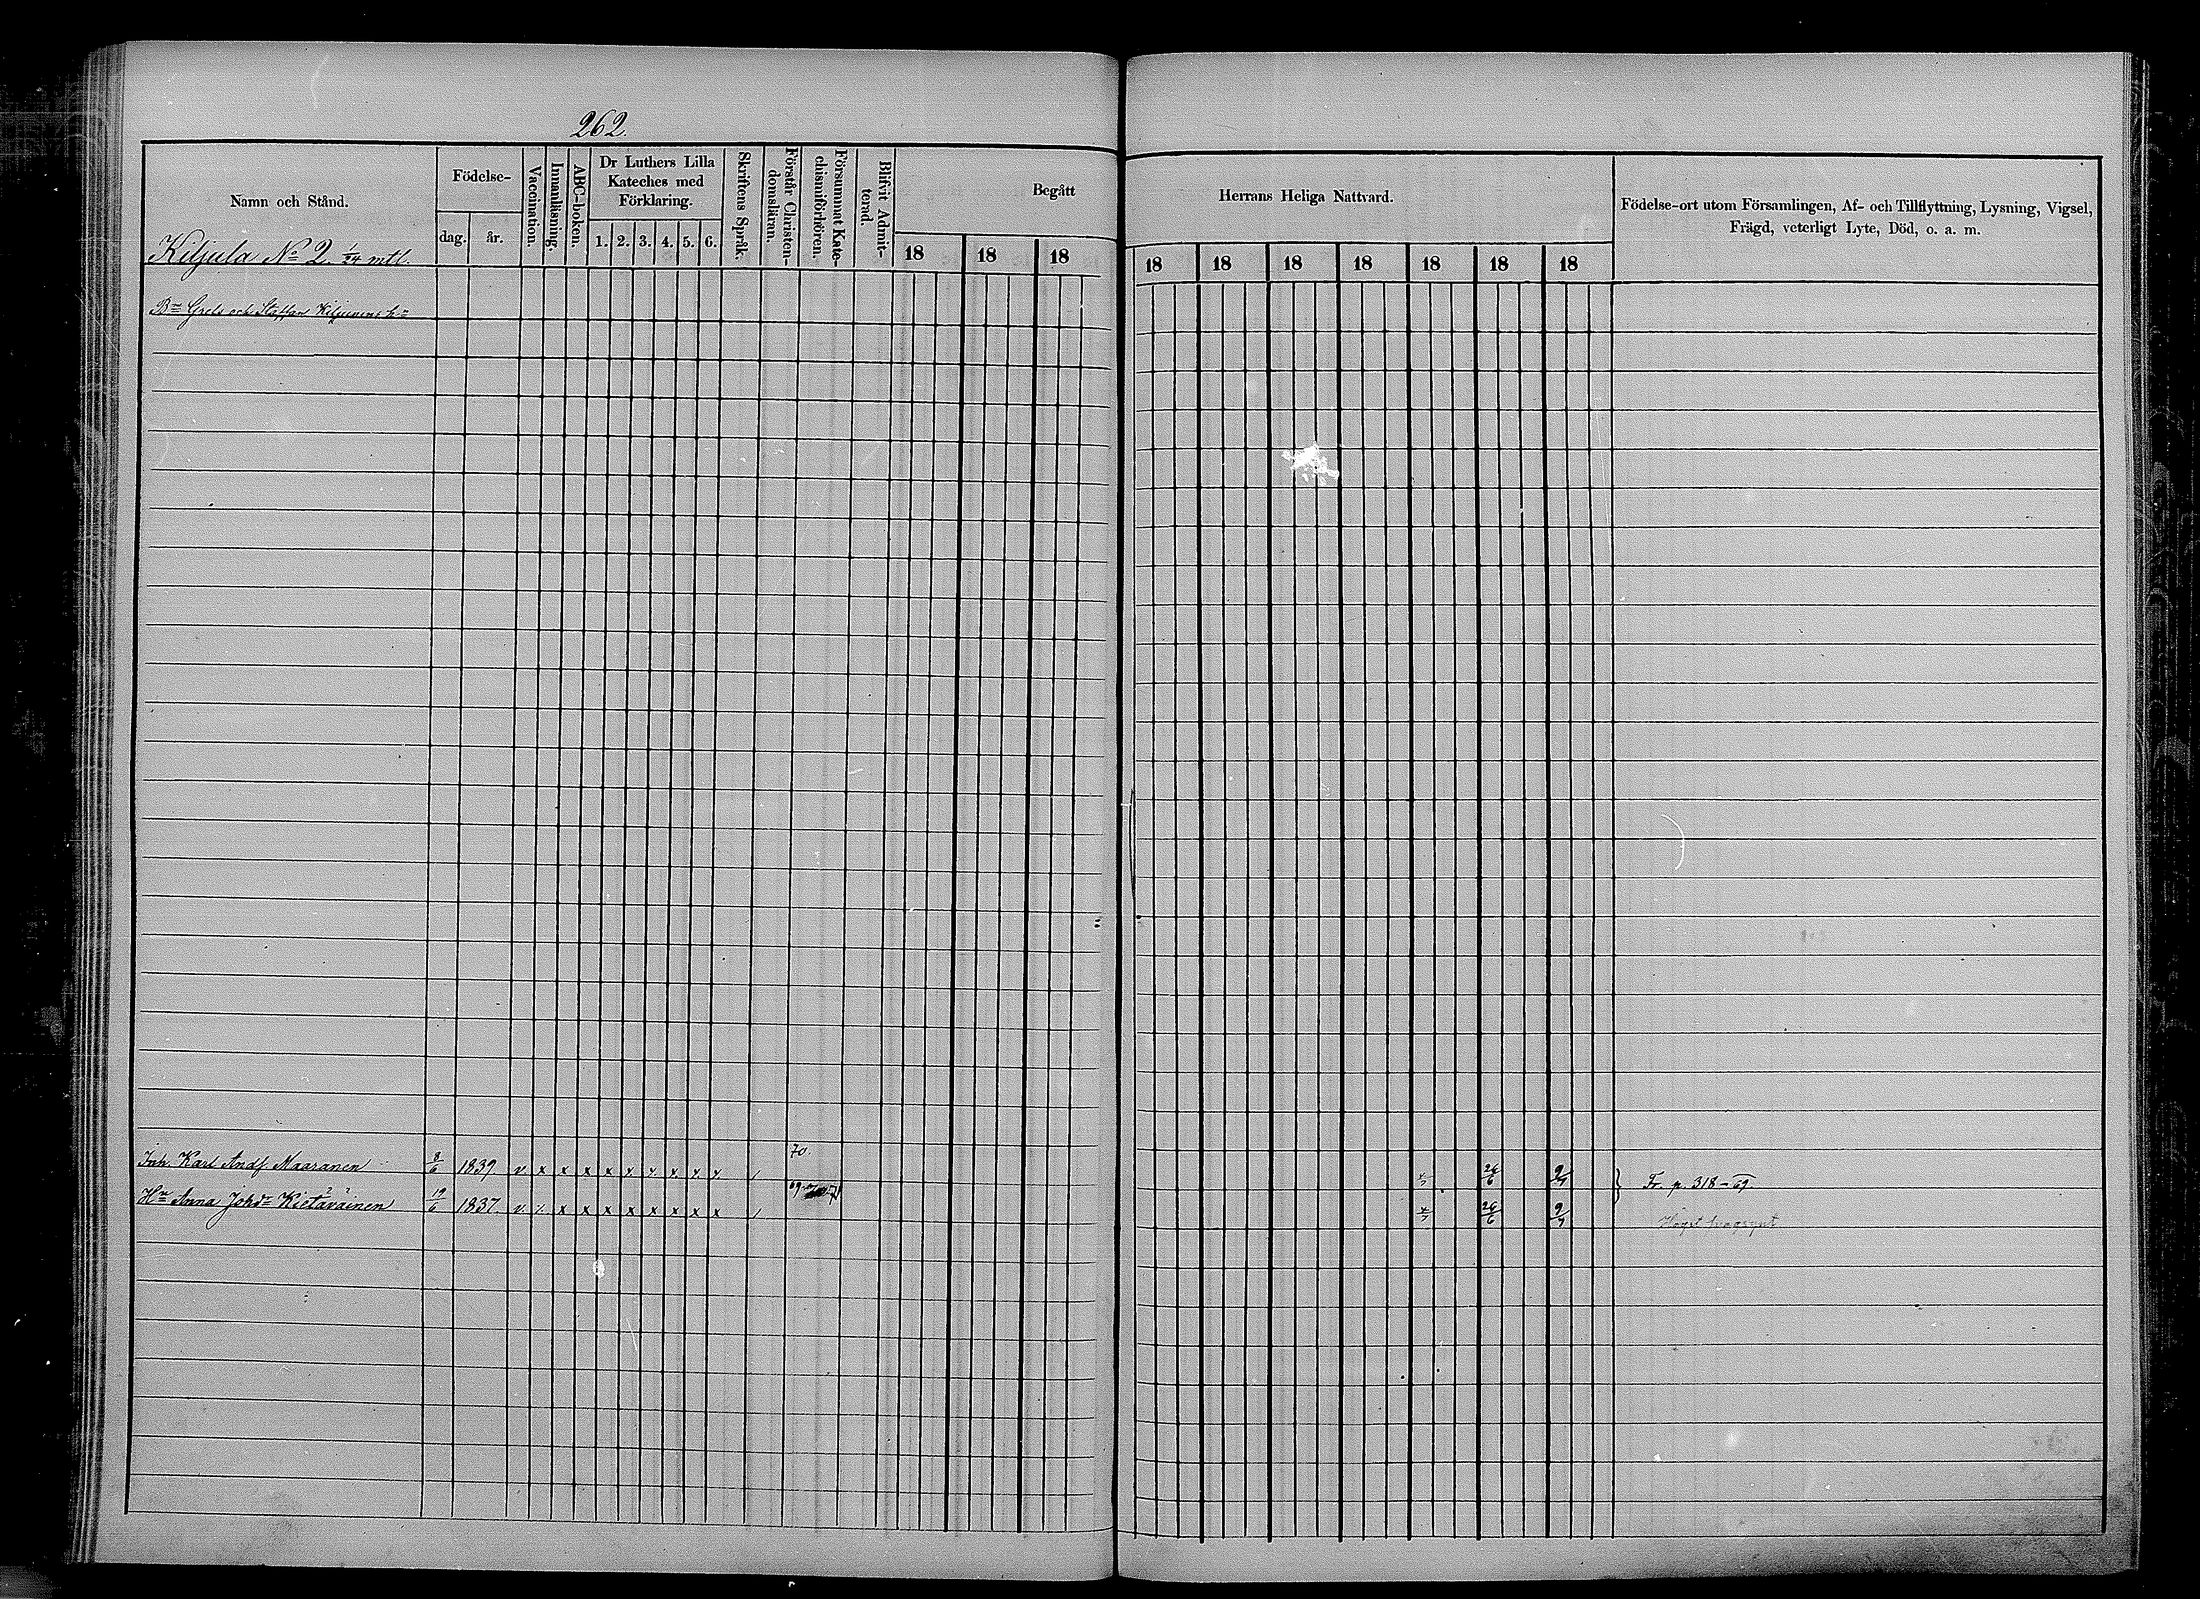 262.
Namn och Stånd.
Födelse-
dag. år.
Vaccination.
Innanläsning.
ABC-boken.
Dr Luthers Lilla
Kateches med
Förklaring.
1. 2. 3. 4. 5. 6.
Skriftens Språk.
Förstår Christen-
domsläran.
Försummat Kate-
chismiförhören.
Blifvit Admit-
terad.
Begått
18 18 18
Herrans Heliga Nattvard.
18 18 18 18 18 18 18
Födelse-ort utom Församlingen, Af- och Tillflyttning, Lysning, Vigsel,
Frägd, veterligt Lyte, Död, o. a. m.
Kiljula No 2. 1/24 mtl.
Bn Grels och Staffan
70.
Inh. Karl Andf. Maaranen 8/6 1839 v. x x x x x x x x x / 26/6 9/7 Fr. p. 318-69.
Hu Anna Johdr Kietäväinen 19/6 1837 v. x x x x x x x x x / 69 26/6 9/7